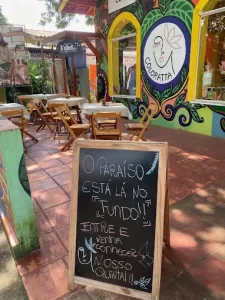 COLORATTA
O PARAÍSO
ESTÁ LÁ NO
"FUNDO!!"
ENTRE E
VENHA
CONHECER
NOSSO
QUINTAL!!